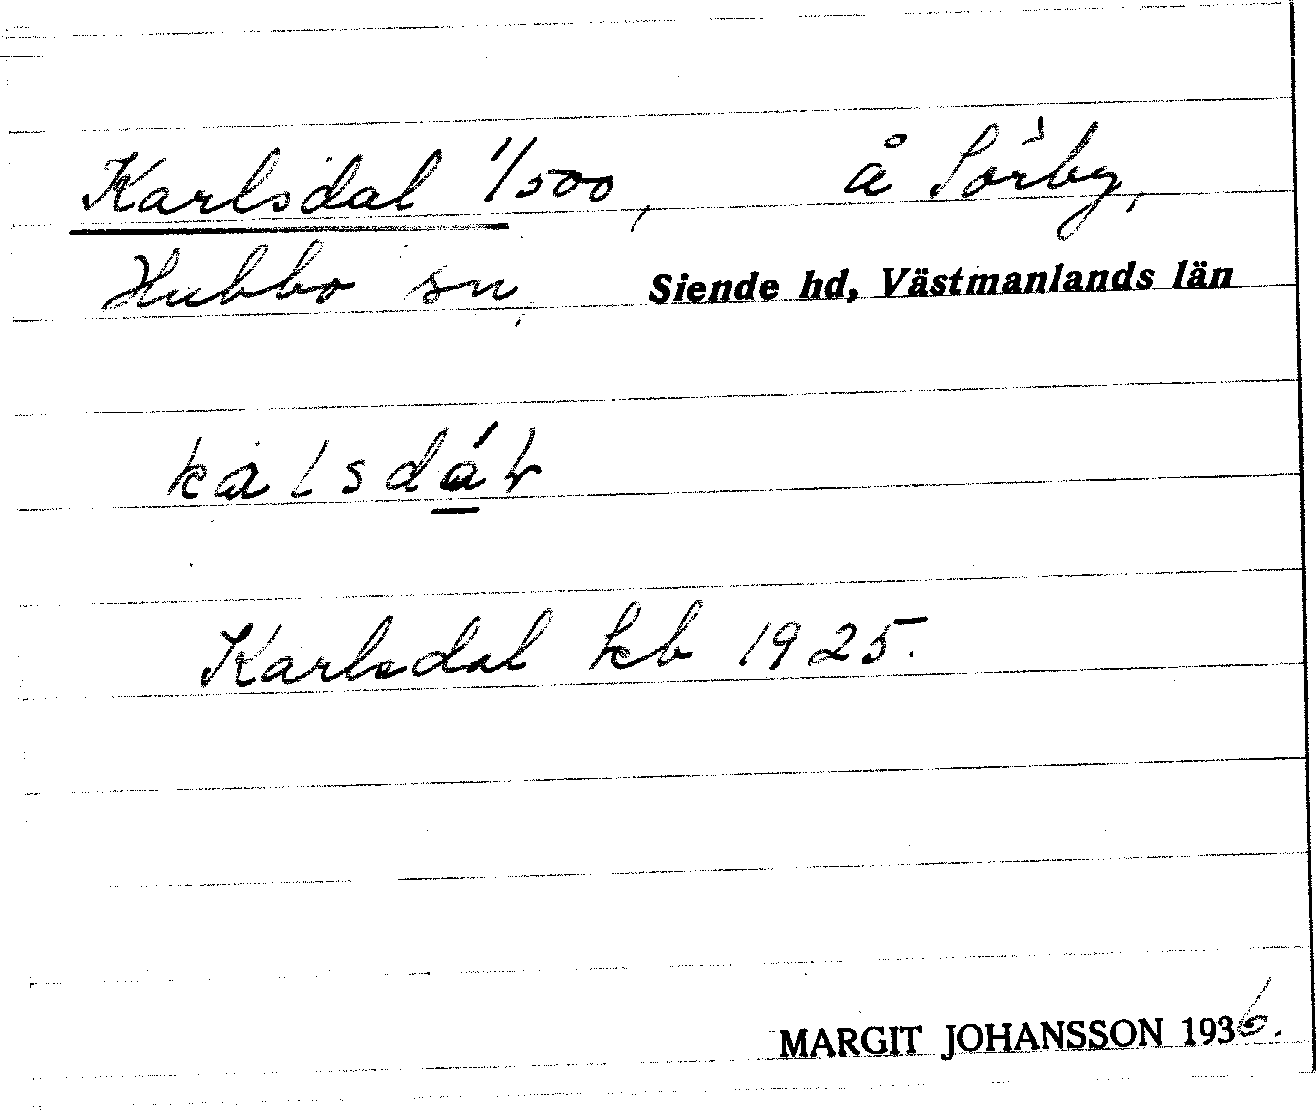 Karlsdal 1/500, å Sörby,
Hubbo sn, Siende hd, Västmanlands län
kalsdáɫ
Karlsdal kb 1925.
MARGIT JOHANSSON 1936.